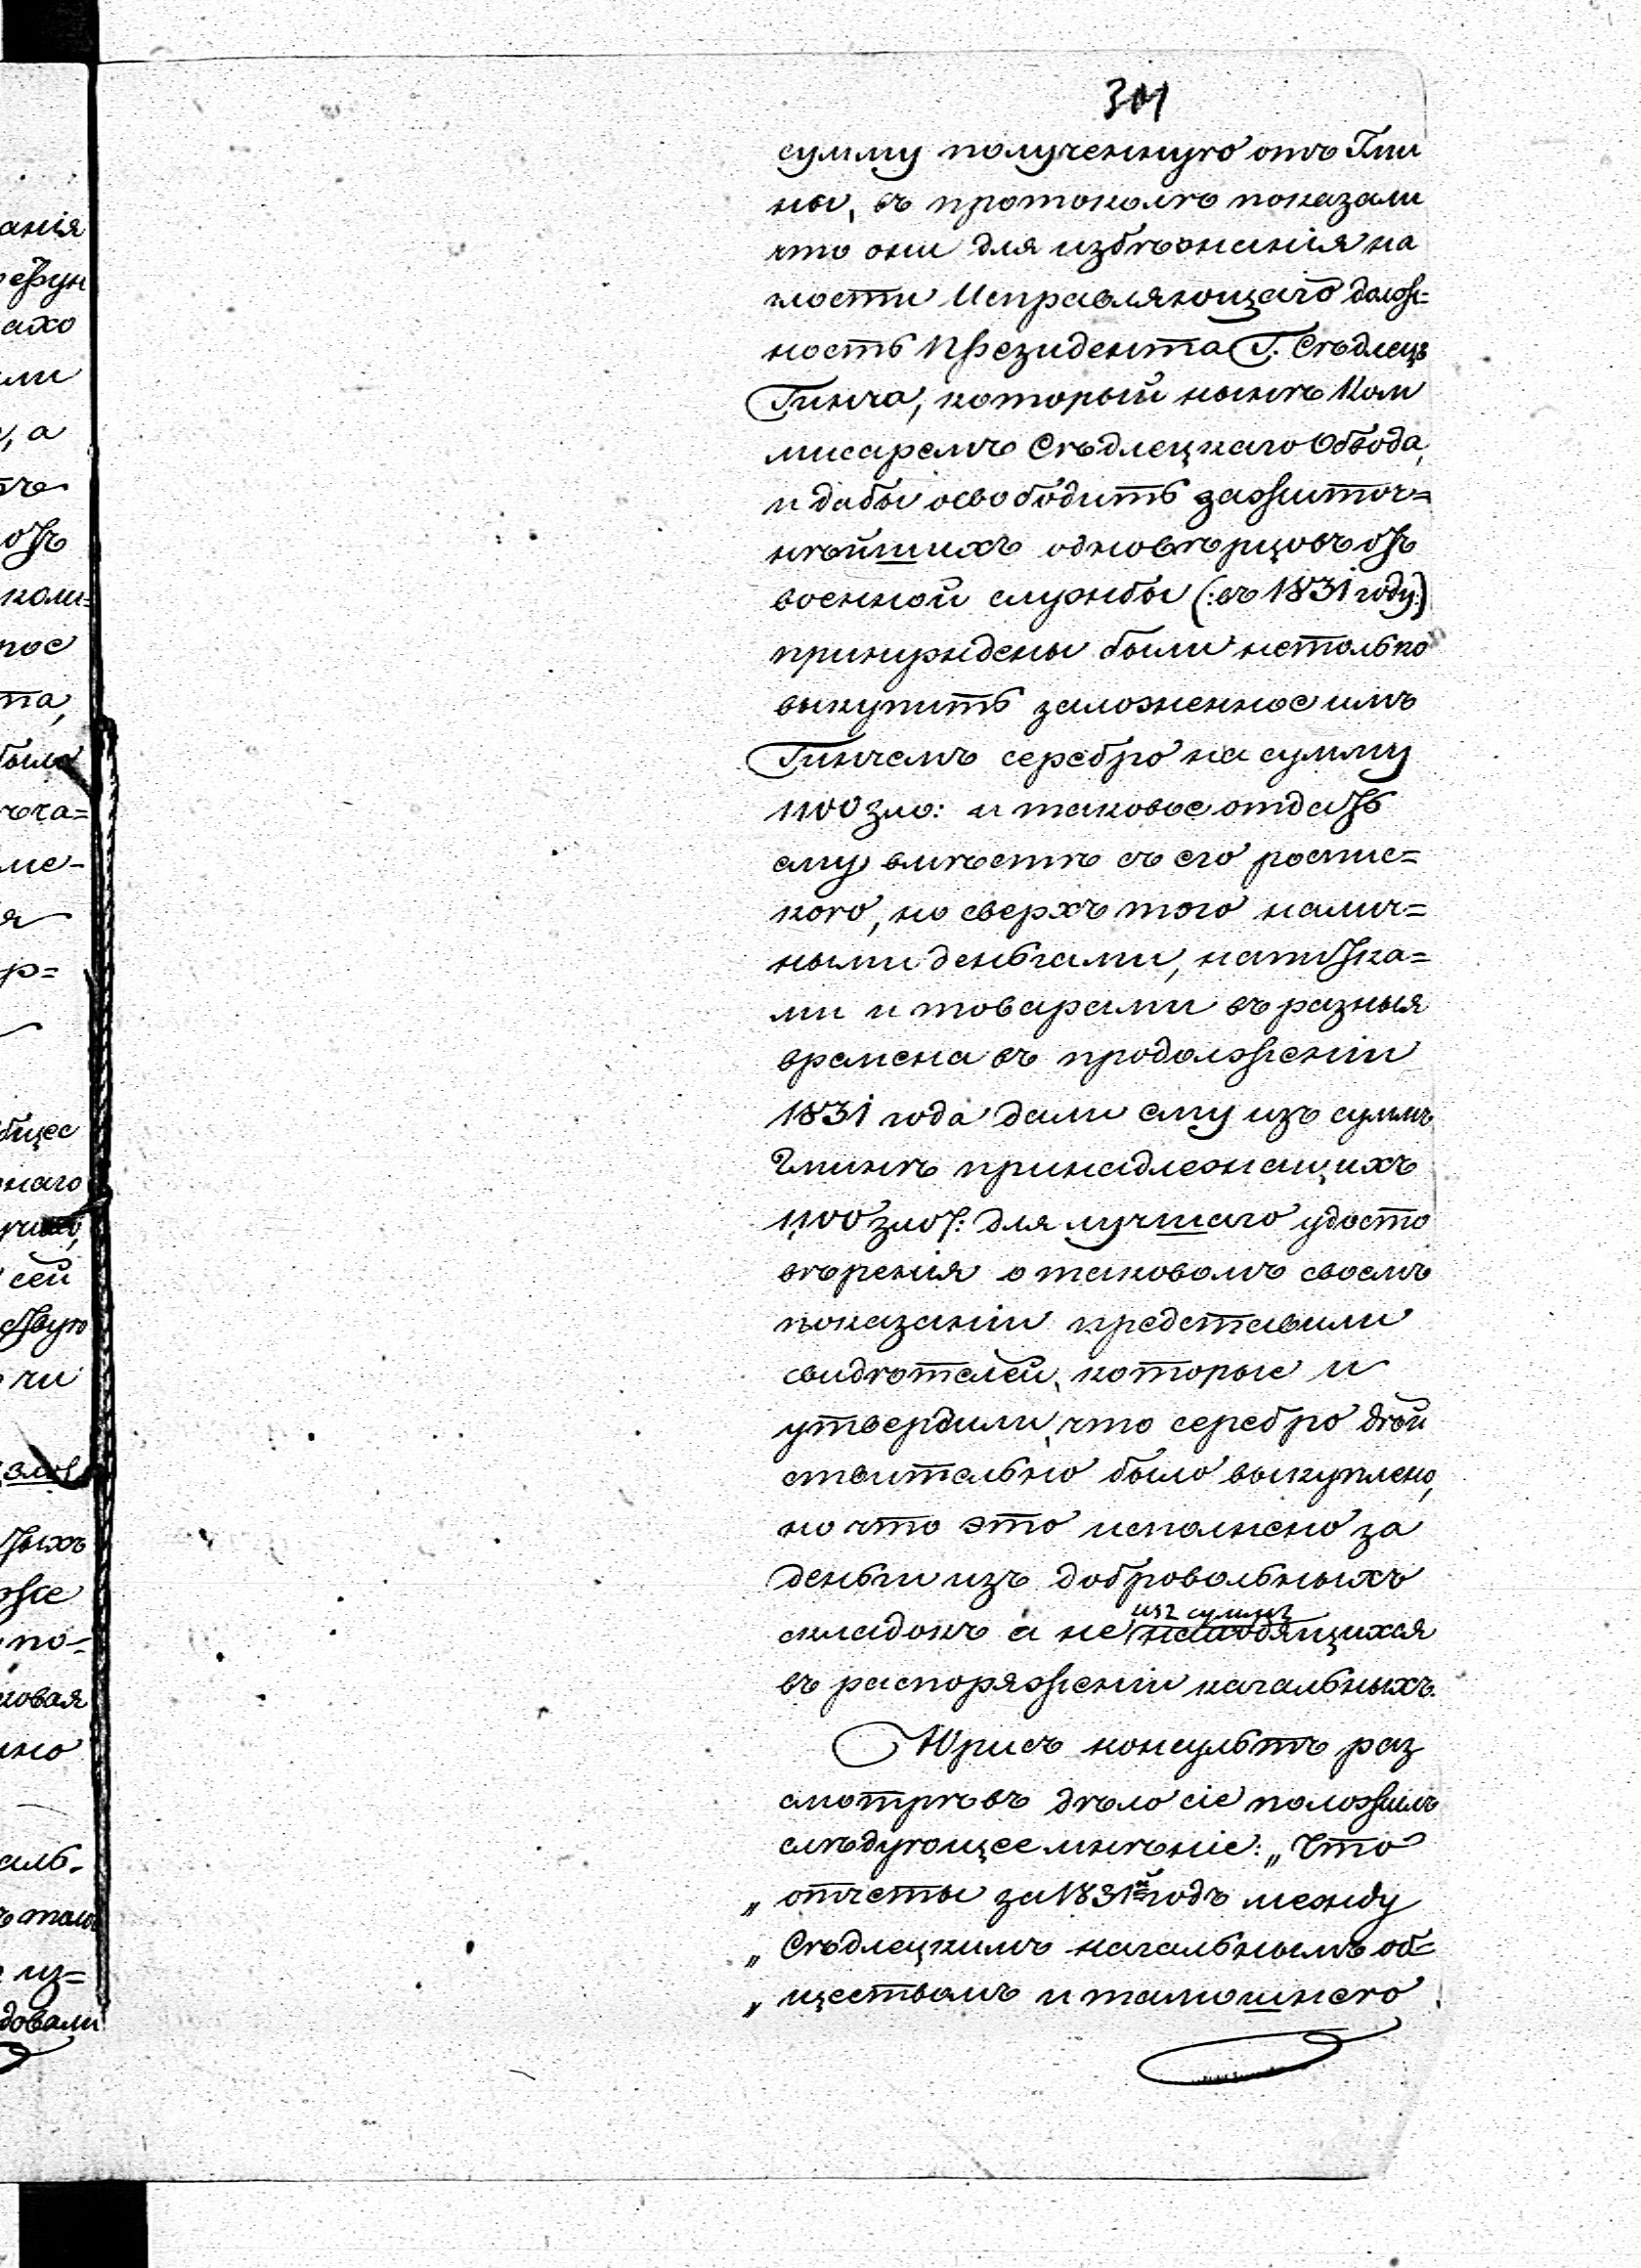 301
ания
ефун
ахо
ли
, а
коли=
пос
та,
было
ме-
я
р=
бщес
наго
сей
ствую
чи
злот
тыхъ
оже
по-
ковая
но
аль-
из=
довали
сумму полученную отъ Гми
ны, въ протоколѣ показали
что они для избѣжанія на
глости Исправляющаго долж=
ность Президента Г. Сѣдлецъ
Гинча, который нынѣ Ком
мисаремъ Сѣдлецкаго Обвода,
и дабы освободить зажиточ=
нѣйшихъ одновѣрцовъ отъ
военной службы (:въ 1831 году:)
принуждены были нетолько
выкупить заложенное имъ
Гинчемъ серебро на сумму
1100 зло: и таковое отдать
ему вмѣстѣ съ его роспис=
кою, но сверхъ того налич=
ными деньгами, напитка=
ми и товарами въ разныя
времена въ продолженіи
1831 года дали ему изъ суммъ
Гминѣ принадлежащихъ
1,100 злот: для лучшаго удосто
вѣренія о таковомъ своемъ
показаніи представили
свидѣтелей, которые и
утвердили, что серебро дѣй
ствительно было выкуплено,
но что это исполнено за
деньги изъ добровольныхъ
складокъ а не изъ суммъ находящихся
въ распоряженіи кагальныхъ.
Юрисъ консультъ раз
смотрѣвъ дѣло сіе положилъ
слѣдующее мнѣніе: „Что
„ отчеты за 1831й годъ между
„ Сѣдлецкимъ кагальнымъ об=
„ ществомъ и тамошнею